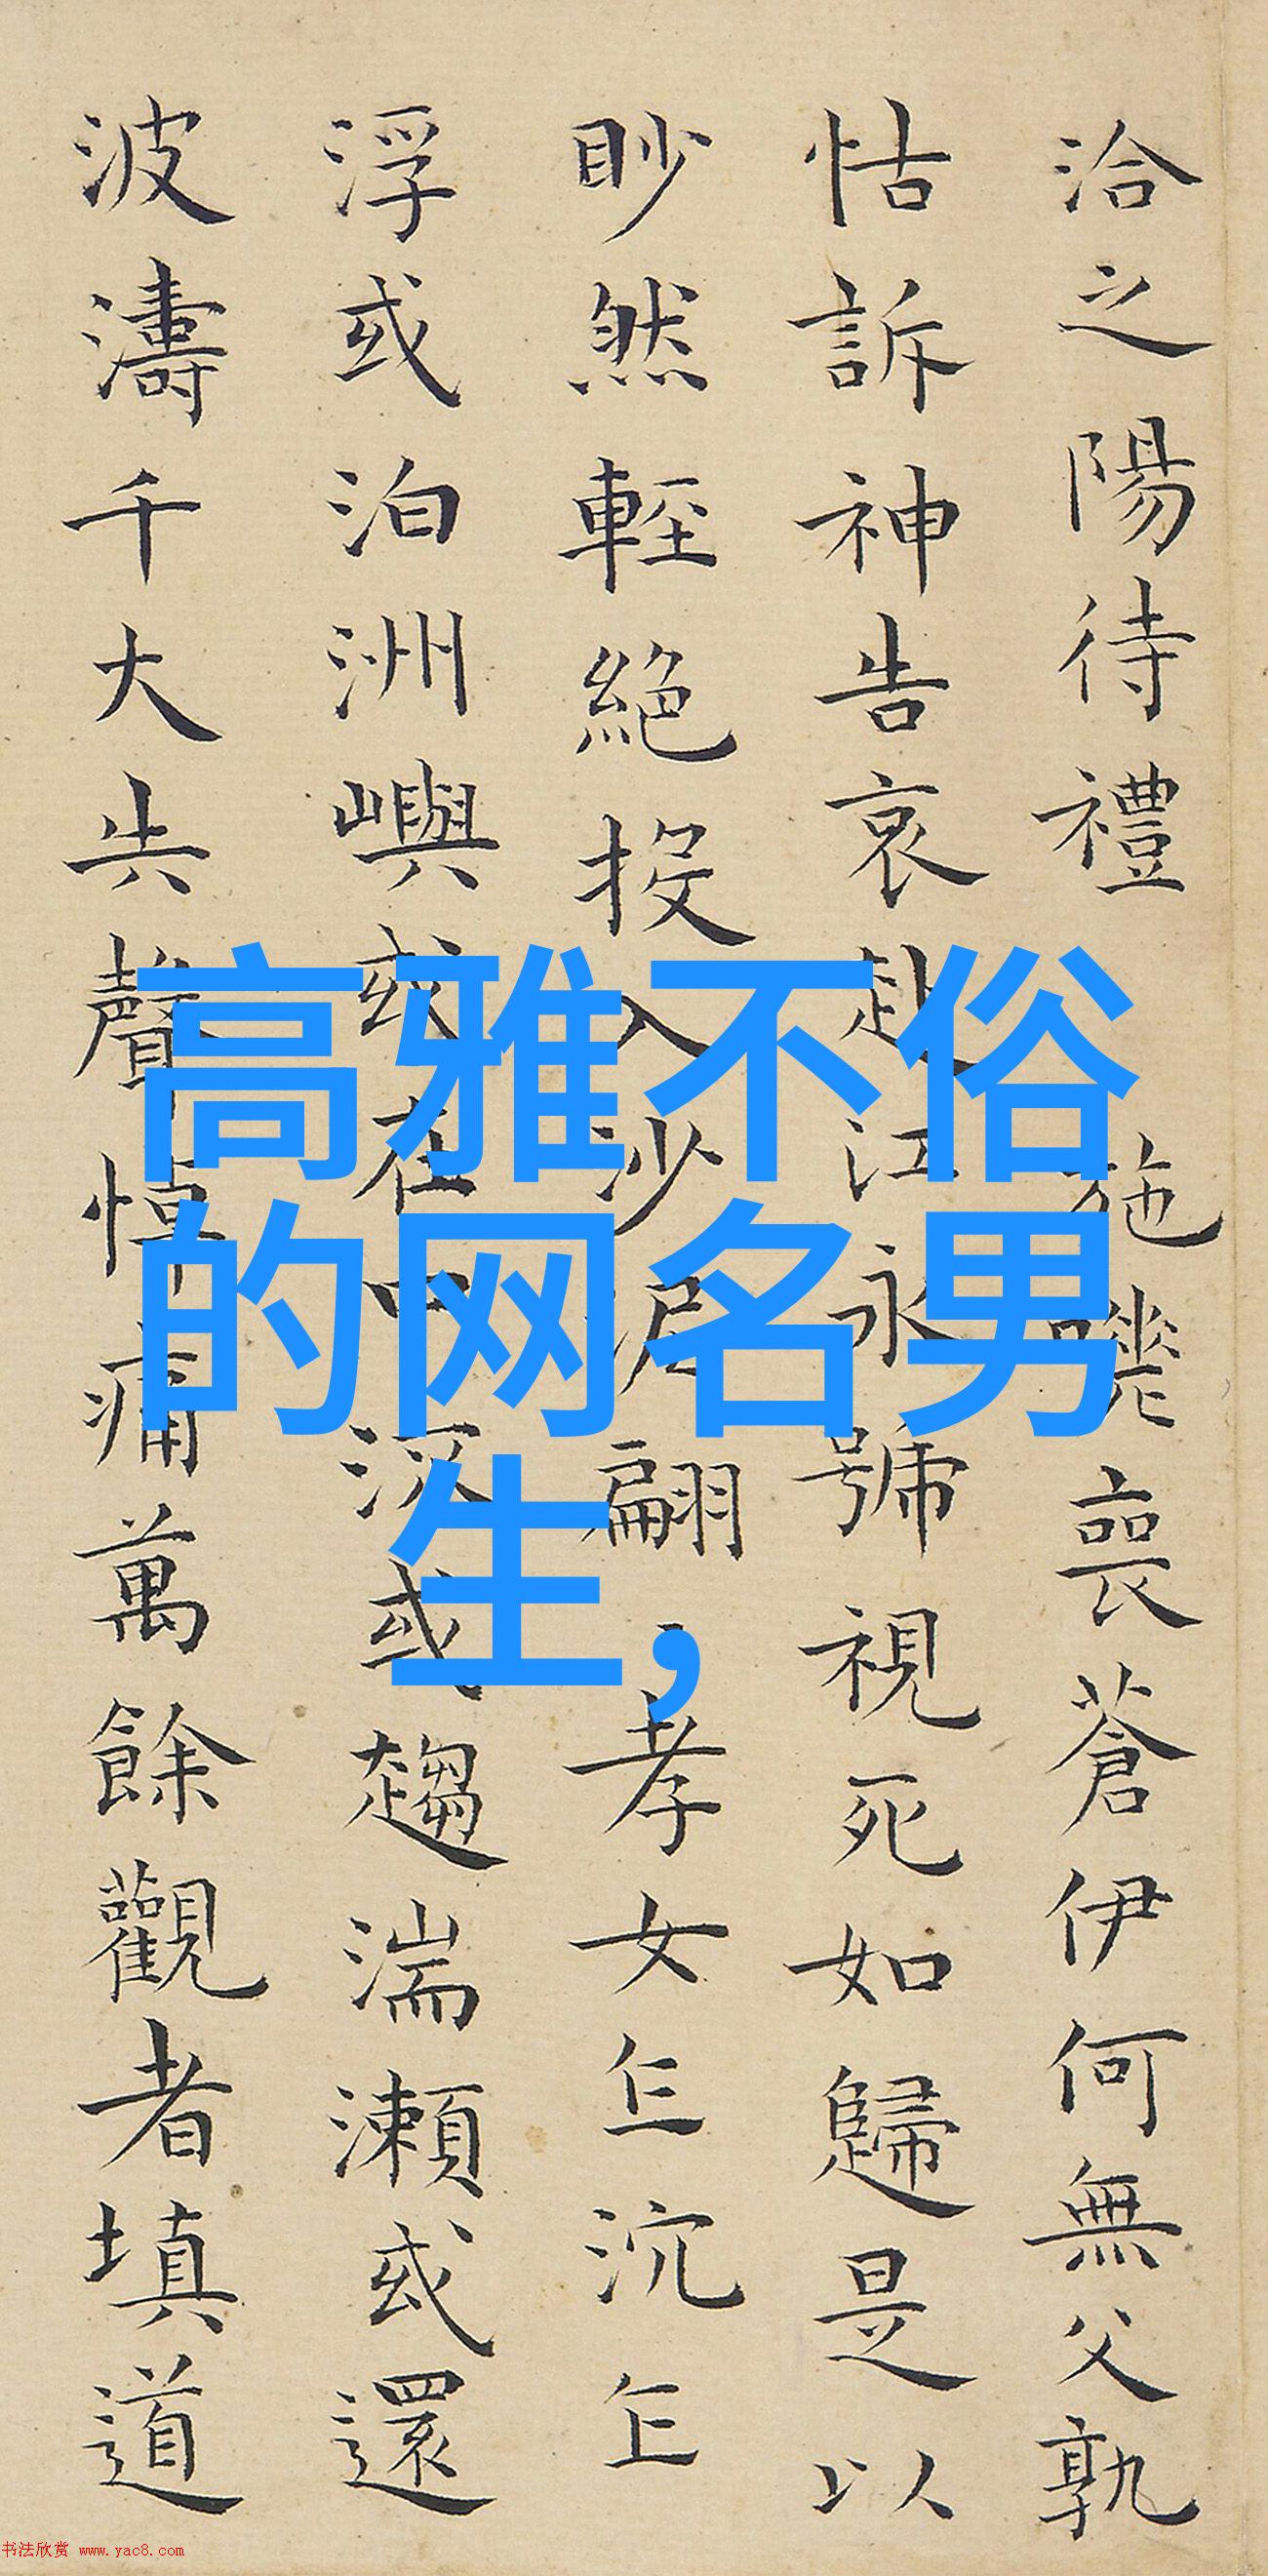 洽之陽待禮施嗟喪蒼伊何無父孰
怙訴神告哀赴江永號視死如歸是以
眇然輕絕投入沙泥翩孝女乍沉乍
浮或泊洲嶼或在中沉或趨湍瀨或還
波濤千大共聲悼痛萬餘觀者填道
高雅不俗
的网名男
生，
书法欣赏 www.yac8.com